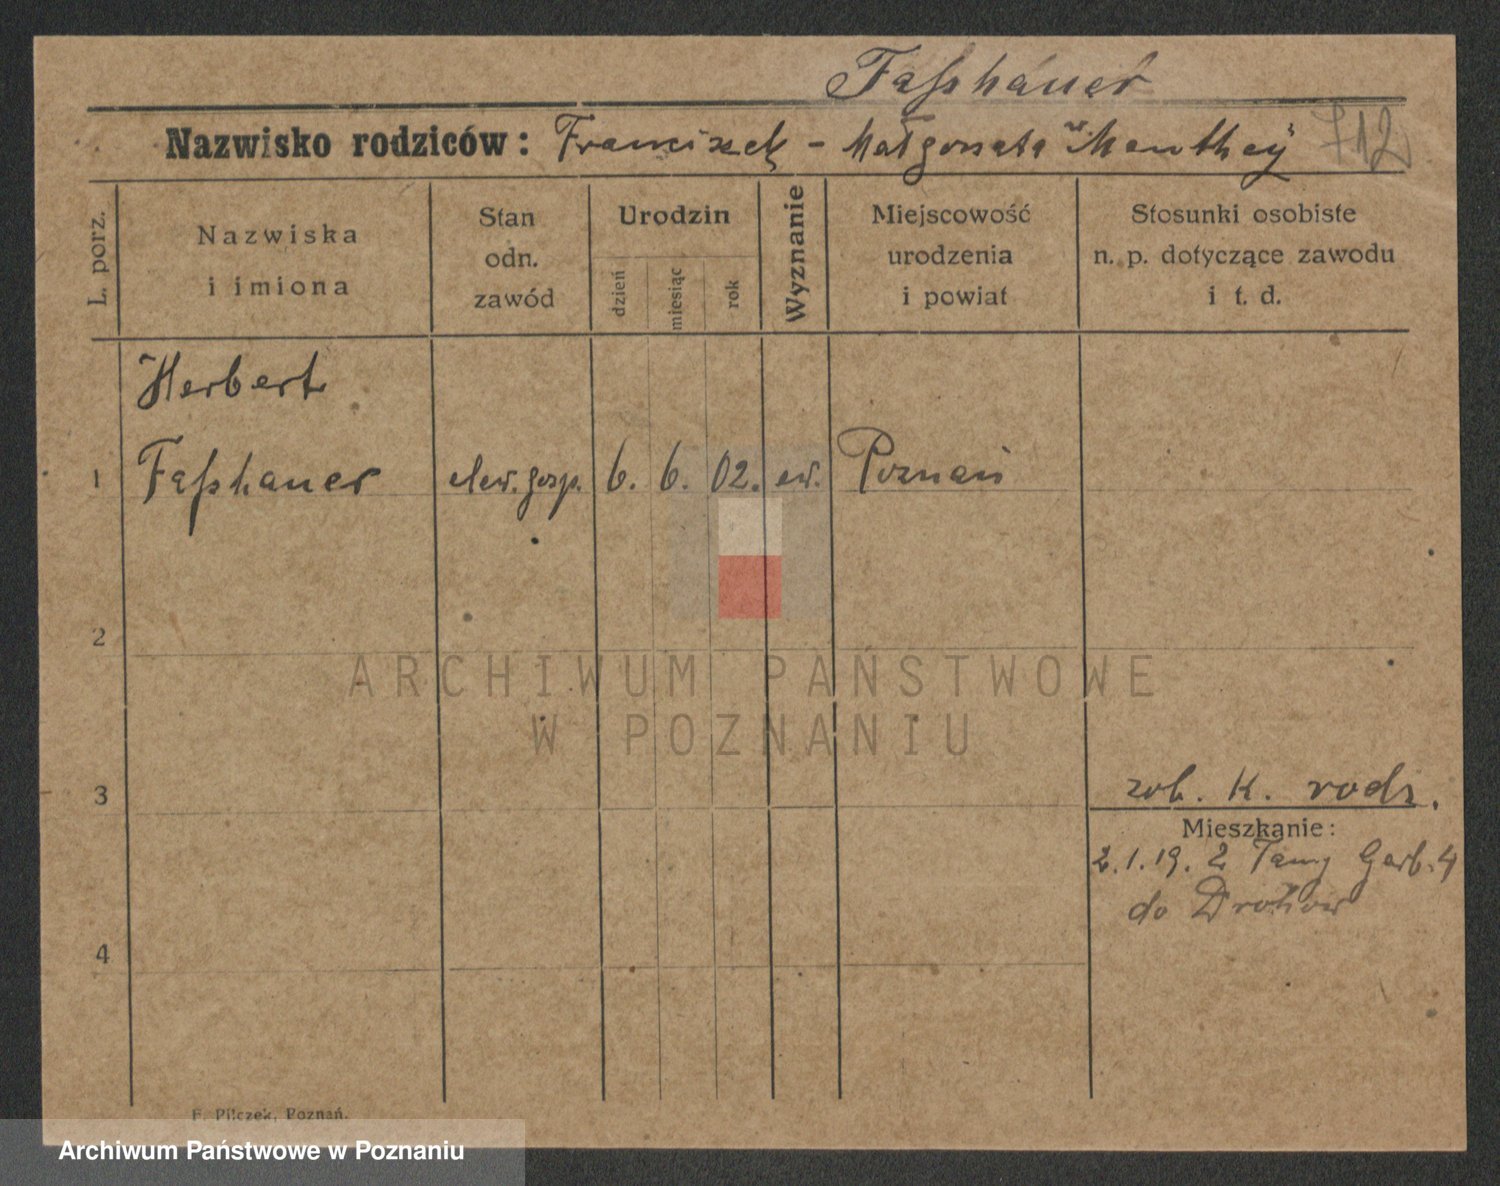 Faßhauer
Nazwisko rodziców: Franciszek - Małgorzata "Manthey" 712
L. porz.
Nazwiska
i imiona
Stan
odn.
zawód
Urodzin
dzień
miesiąc
rok
Wyznanie
Miejscowość
urodzenia
i powiat
Stosunki osobiste
n. p. dotyczące zawodu
i t. d.
Herbert
1 Faßhauer elew. gosp. 6. 6. 02. ew. Poznań
2
ARCHIWUM PAŃSTWOWE
W POZNANIU
3
zob. K. rodz.
Mieszkanie:
2.1.19. 2 Tamy Garb. 4
do
4
F. Pilczek, Poznań.
Archiwum Państwowe w Poznaniu